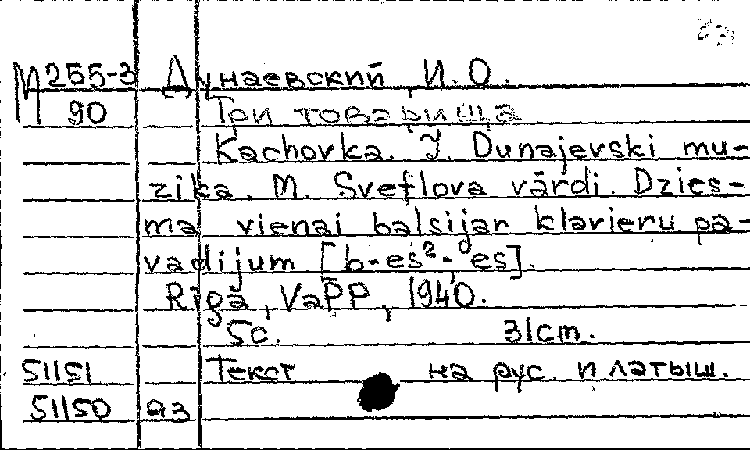 М 255-3 Дунаевский, И. О.
90 Три товарища
Kachovka. I. Dunajevski mu-
zika. M. Svetlova vārdi. Dzies-
ma vienai balsij ar klavieru pa-
vadijum [b-es²- es].
Rīgā, VaPP, 1940.
5c. 31cm.
51151 Текст на рус. и латыш.
51150 аз